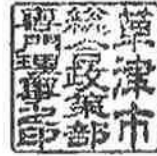 草津市
総合政策部
専門理事之印